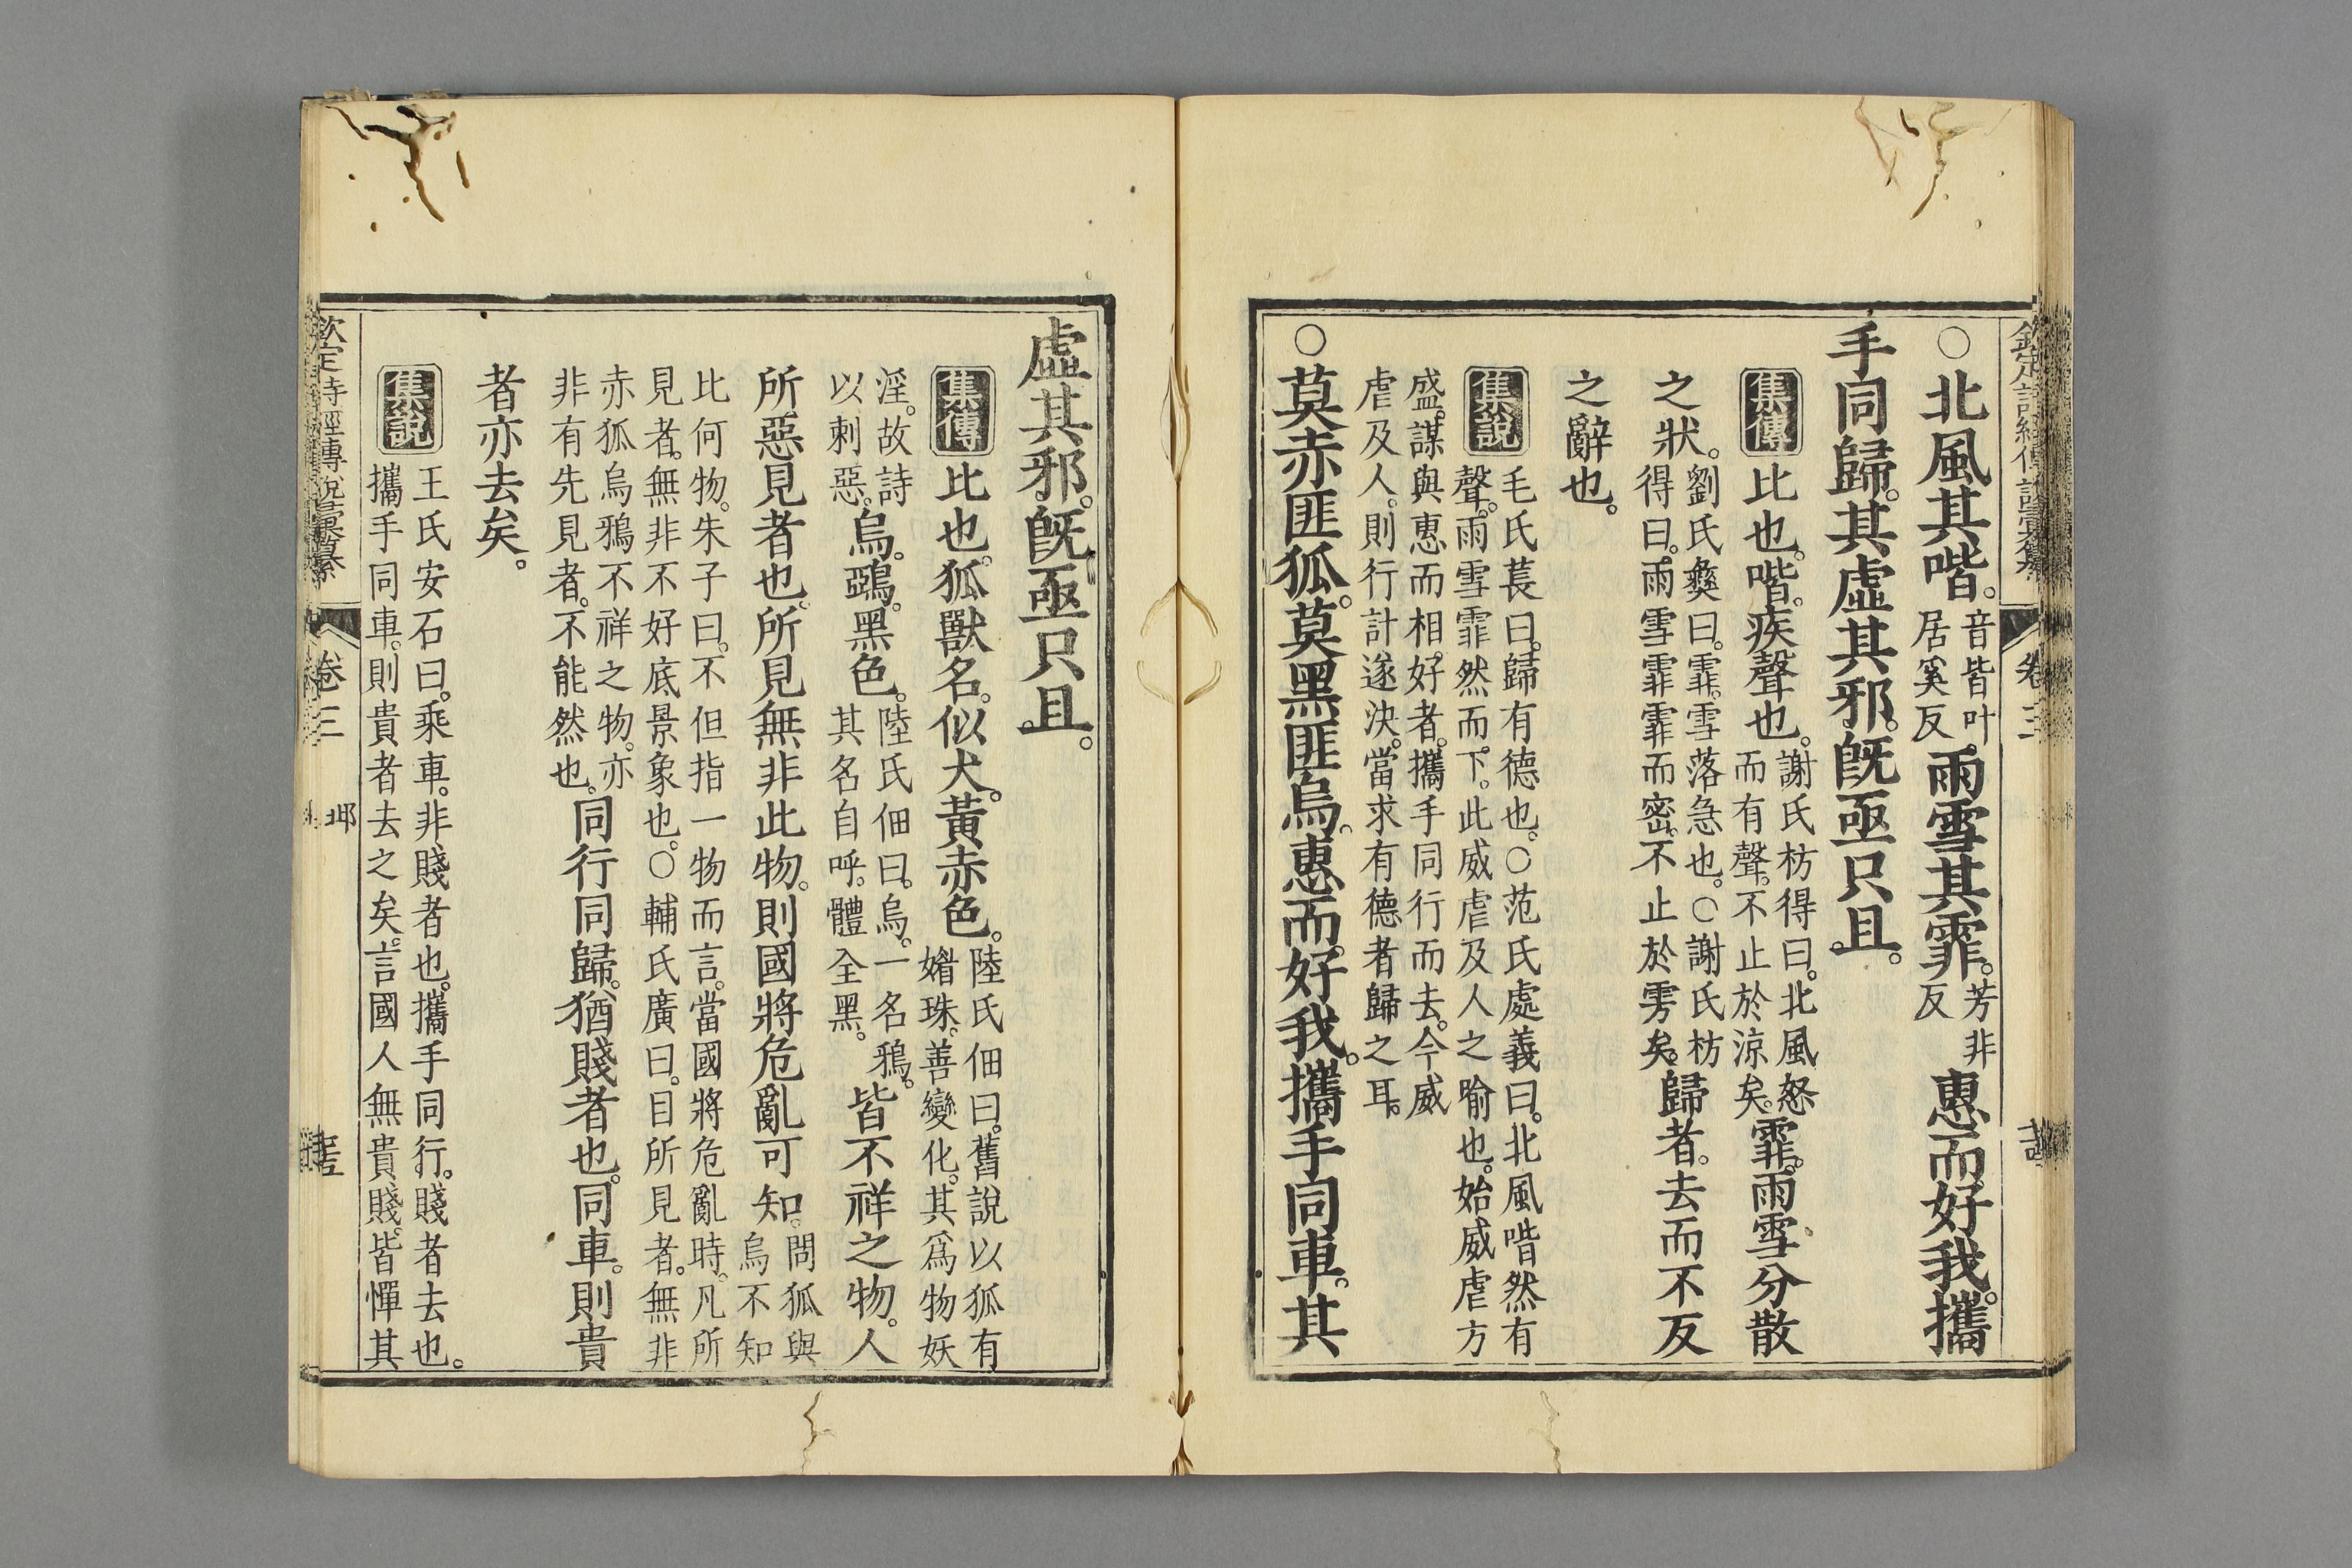 ○北風其喈。音皆叶居奚反雨雪其霏。芳非反惠而好我。攜
手同歸。其虛其邪。旣亟只且。
集傳比也。喈。疾聲也。謝氏枋得曰。北風怒而有聲。不止於涼矣。霏。雨雪分散
之狀。劉氏彝曰。霏。雪落急也。○謝氏枋得曰。雨雪霏霏而密。不止於雱矣。歸者。去而不反
之辭也。
集說毛氏萇曰。歸有德也。○范氏處義曰。北風喈然有
聲。雨雪霏然而下。此威虐及人之喻也。始威虐方
盛。謀與惠而相好者。攜手同行而去。今威
虐及人。則行計遂決。當求有德者歸之耳。
○莫赤匪狐。莫黑匪烏。惠而好我。攜手同車。其
虛其邪。旣亟只且。
集傳比也。狐。獸名。似犬。黃赤色。陸氏佃曰。舊說以狐有媚珠。善變化。其爲物妖
淫。故詩以刺惡。烏。鵶。黑色。陸氏佃曰。烏。一名鴉。其名自呼。體全黑。皆不祥之物。人
所惡見者也。所見無非此物。則國將危亂可知。問狐與烏不知
比何物。朱子曰。不但指一物而言。當國將危亂時。凡所
見者。無非不好底景象也。○輔氏廣曰。目所見者。無非
赤狐烏鴉不祥之物。亦非有先見者。不能然也。同行同歸。猶賤者也。同車。則貴
者亦去矣。
集說王氏安石曰。乘車。非賤者也。攜手同行。賤者去也。
攜手同車。則貴者去之矣。言國人無貴賤。皆憚其
欽定詩經傳說彙纂 卷三 邶